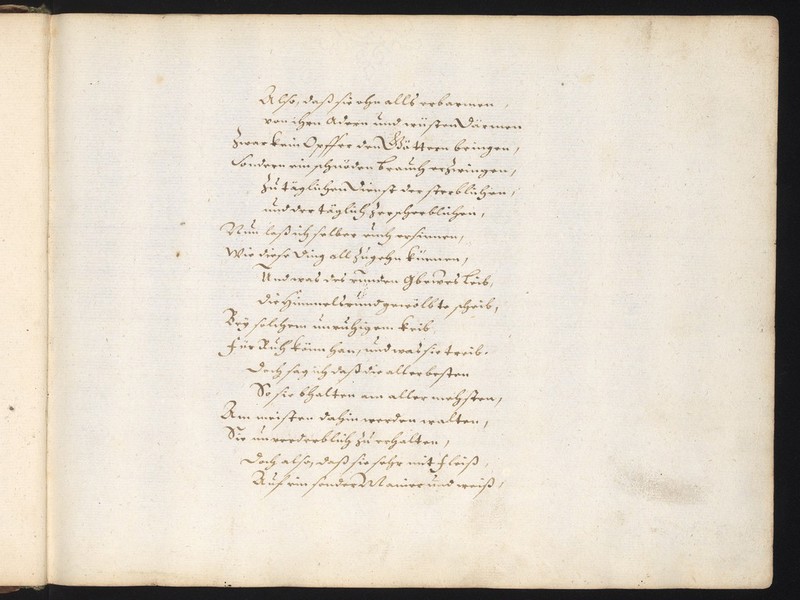 Also, daß sie ohn alls erbarmen,
von ihren Adern und wüsten Därmen
Zwar kein Opffer den Göttern bringen,
Sondern ein schnöden brauch erzwingen,
Zu täglichen Dienst der sterblichen,
und der täglich zerscherblichen,
Nun laß ich selber euch ersinnen,
Wie diese Ding all zugehn künnen,
Und was des runden Leib,
die Himmelsrund gewölbte scheib,
Bey solchem unruhigem keib
Für Ruh könn han, und was sie treib.
Doch sag ich daß die allerbesten
So sie bhalten am aller mehsten,
Am meisten dahin werden walten,
Sie unverderblich zu erhalten,
Doch also, daß sie sehr mit fleiß,
Auf ein sonder Manier und weiß,